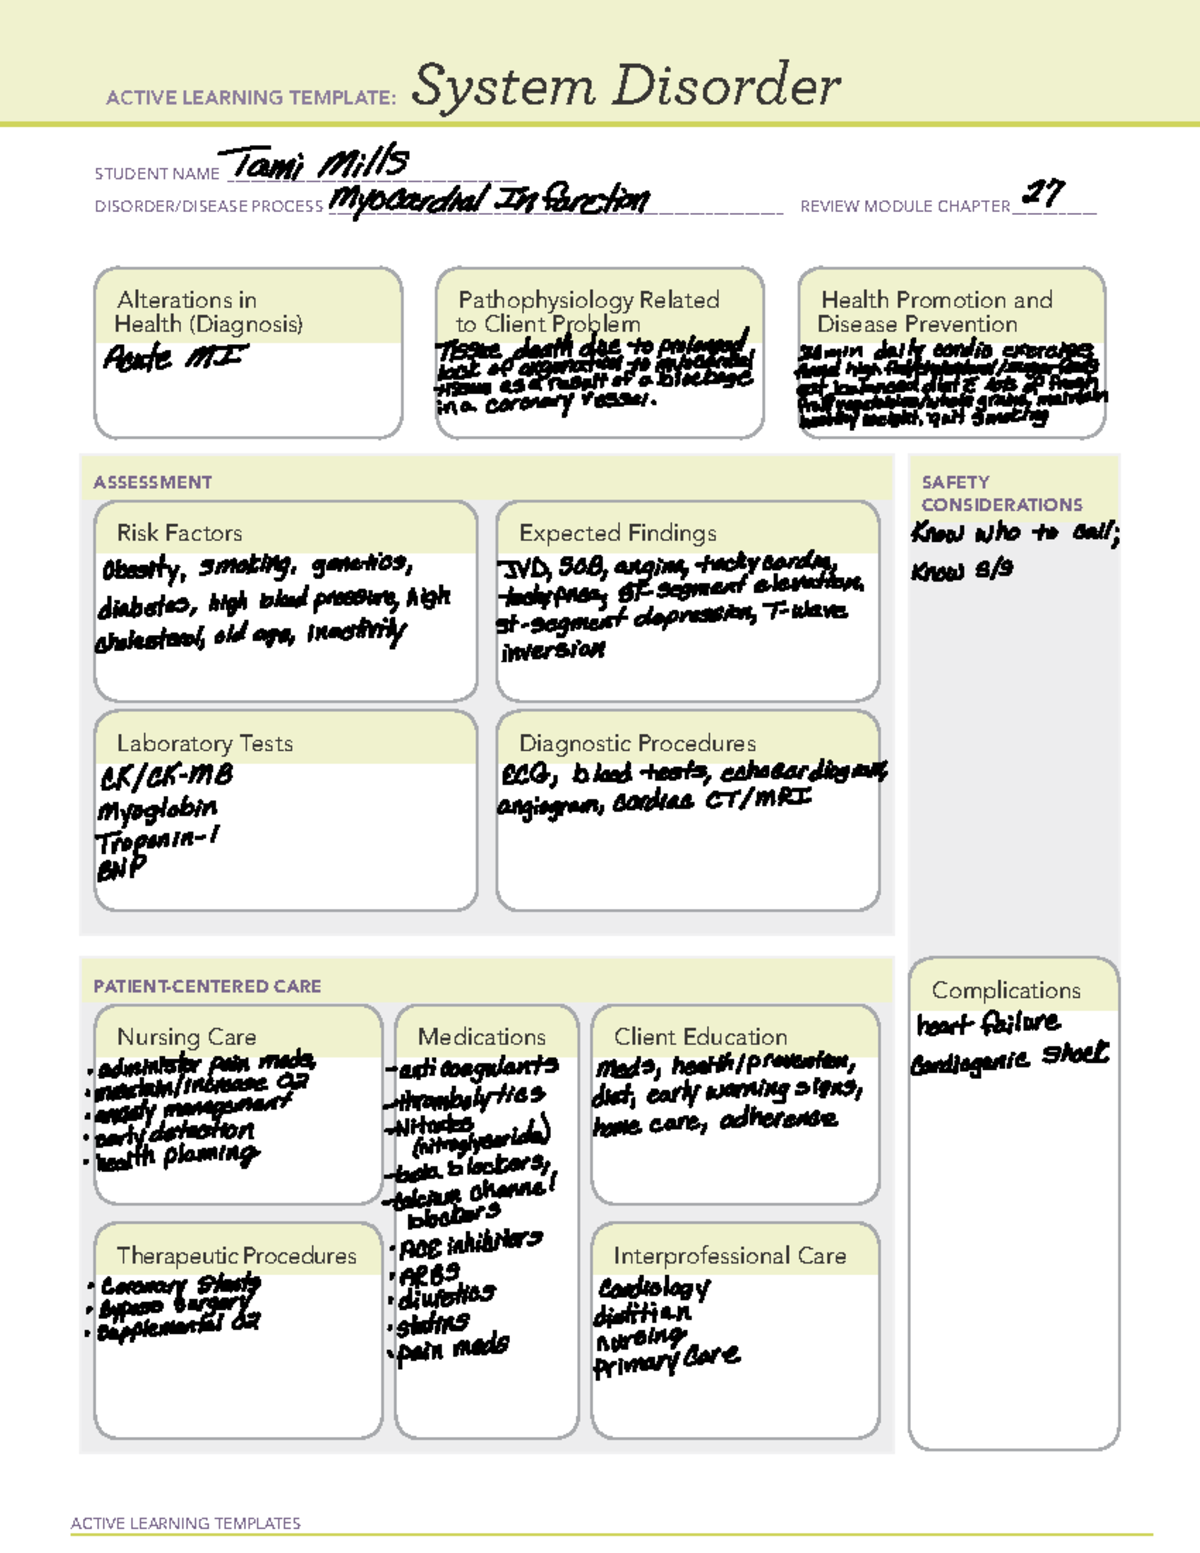 ACTIVE LEARNING TEMPLATE: System Disorder
STUDENT NAME Tami Mills
DISORDER/DISEASE PROCESS Myocardial Infarction REVIEW MODULE CHAPTER 27
Alterations in
Health (Diagnosis)
Acute MI
Pathophysiology Related
to Client Problem
Tissue death due to prolonged
lack of oxygenation to myocardial
tissue as a result of a blockage
in a coronary vessel.
Health Promotion and
Disease Prevention
30 min daily cardio exercises
avoid high fat/cholesterol/sugar foods
eat balanced diet c lots of fresh
fruit vegetables/whole grains, maintain
healthy weight, quit smoking
ASSESSMENT
Risk Factors
Obesity, smoking, genetics,
diabetes, high blood pressure, high
cholesterol, old age, inactivity
Expected Findings
JVD, SOB, angina, tachycardia,
tachypnea, ST-segment elevation,
st-segment depression, T-wave
inversion
Laboratory Tests
CK/CK-MB
Myoglobin
Troponin-I
BNP
Diagnostic Procedures
ECG, blood tests, echocardiogram,
angiogram, cardiac CT/MRI
SAFETY
CONSIDERATIONS
Know who to call;
Know S/S
PATIENT-CENTERED CARE
Nursing Care
• administer pain meds,
• maintain/increase O2
• anxiety management
• early detection
• health planning
Therapeutic Procedures
• Coronary Stents
• Bypass Surgery
• Supplemental O2
Medications
-anticoagulants
-thrombolytics
-Nitrates
(nitroglyceride)
-beta blockers,
-calcium channel
blockers
• ACE inhibitors
• ARBS
• diuretics
• statins
• pain meds
Client Education
Meds, health/prevention,
diet, early warning signs,
home care, adherence
Interprofessional Care
Cardiology
dietitian
nursing
Primary Care
Complications
heart failure
Cardiogenic Shock
ACTIVE LEARNING TEMPLATES